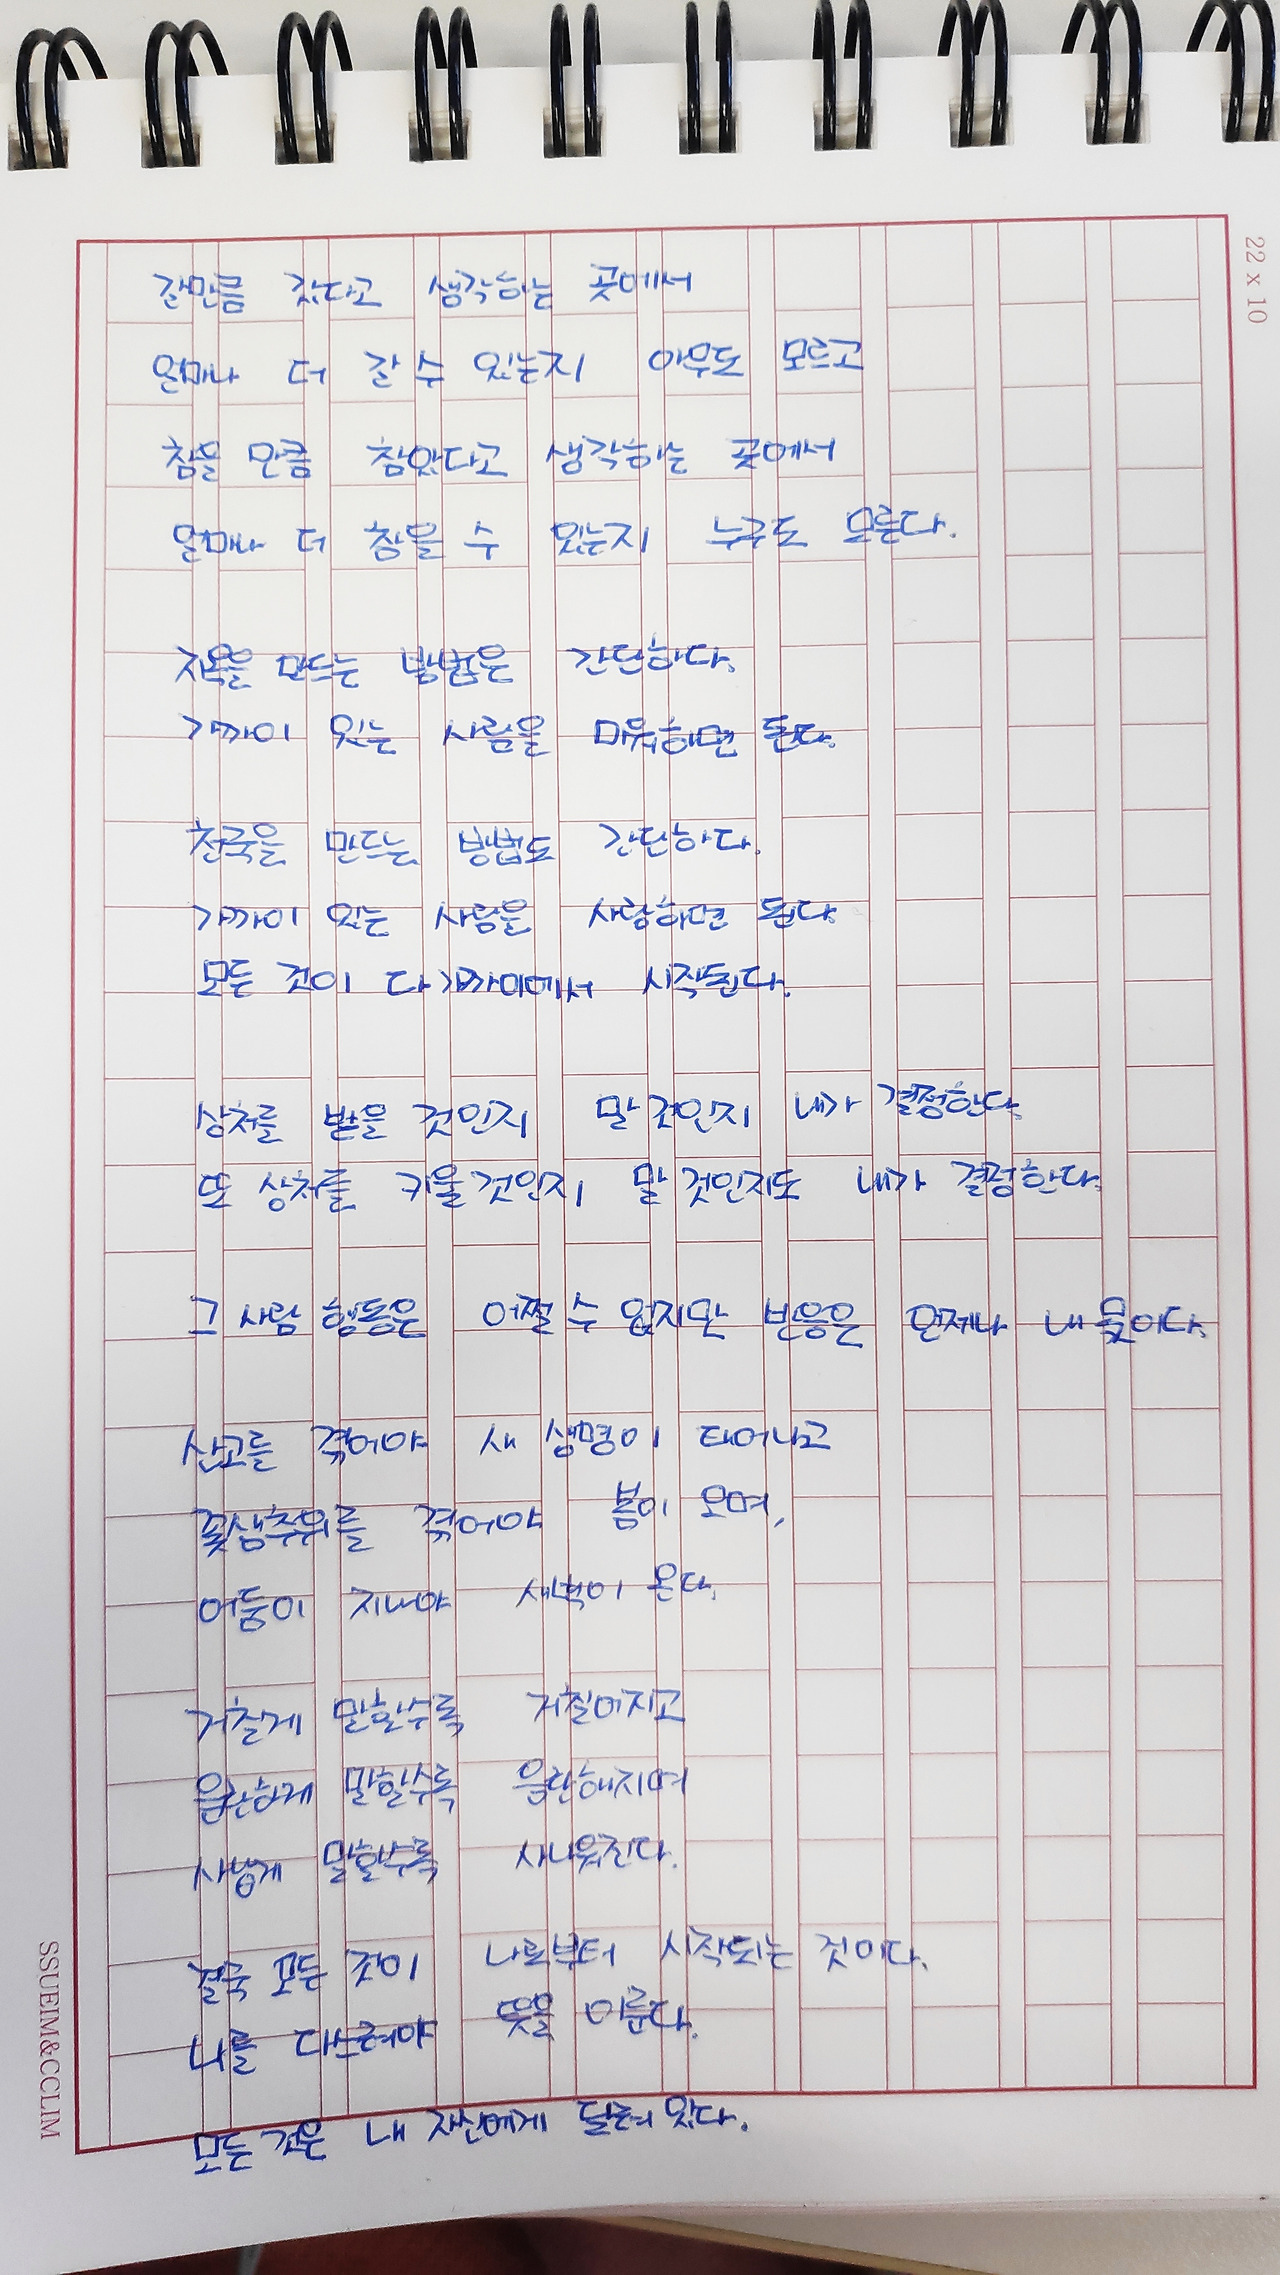 갈만큼 갔다고 생각하는 곳에서
얼마나 더 갈 수 있는지 아무도 모르고
참을 만큼 참았다고 생각하는 곳에서
얼마나 더 참을 수 있는지 누구도 모른다.
지옥을 만드는 방법은 간단하다.
가까이 있는 사람을 미워하면 된다.
천국을 만드는 방법도 간단하다.
가까이 있는 사람을 사랑하면 된다.
모든 것이 다 가까이에서 시작된다.
상처를 받을 것인지 말 것인지 내가 결정한다.
또 상처를 키울 것인지 말 것인지도 내가 결정한다.
그 사람 행동은 어쩔 수 없지만 반응은 언제나 내 몫이다.
산고를 겪어야 새 생명이 태어나고
꽃샘추위를 겪어야 봄이 오며,
어둠이 지나야 새벽이 온다.
거칠게 말할수록 거칠어지고
음란하게 말할수록 음란해지며
사납게 말할수록 사나워진다.
결국 모든 것이 나로부터 시작되는 것이다.
나를 다스려야 뜻을 이룬다.
모든 것은 내 자신에게 달려 있다.
22 x 10
SSUEIM&CCLIM